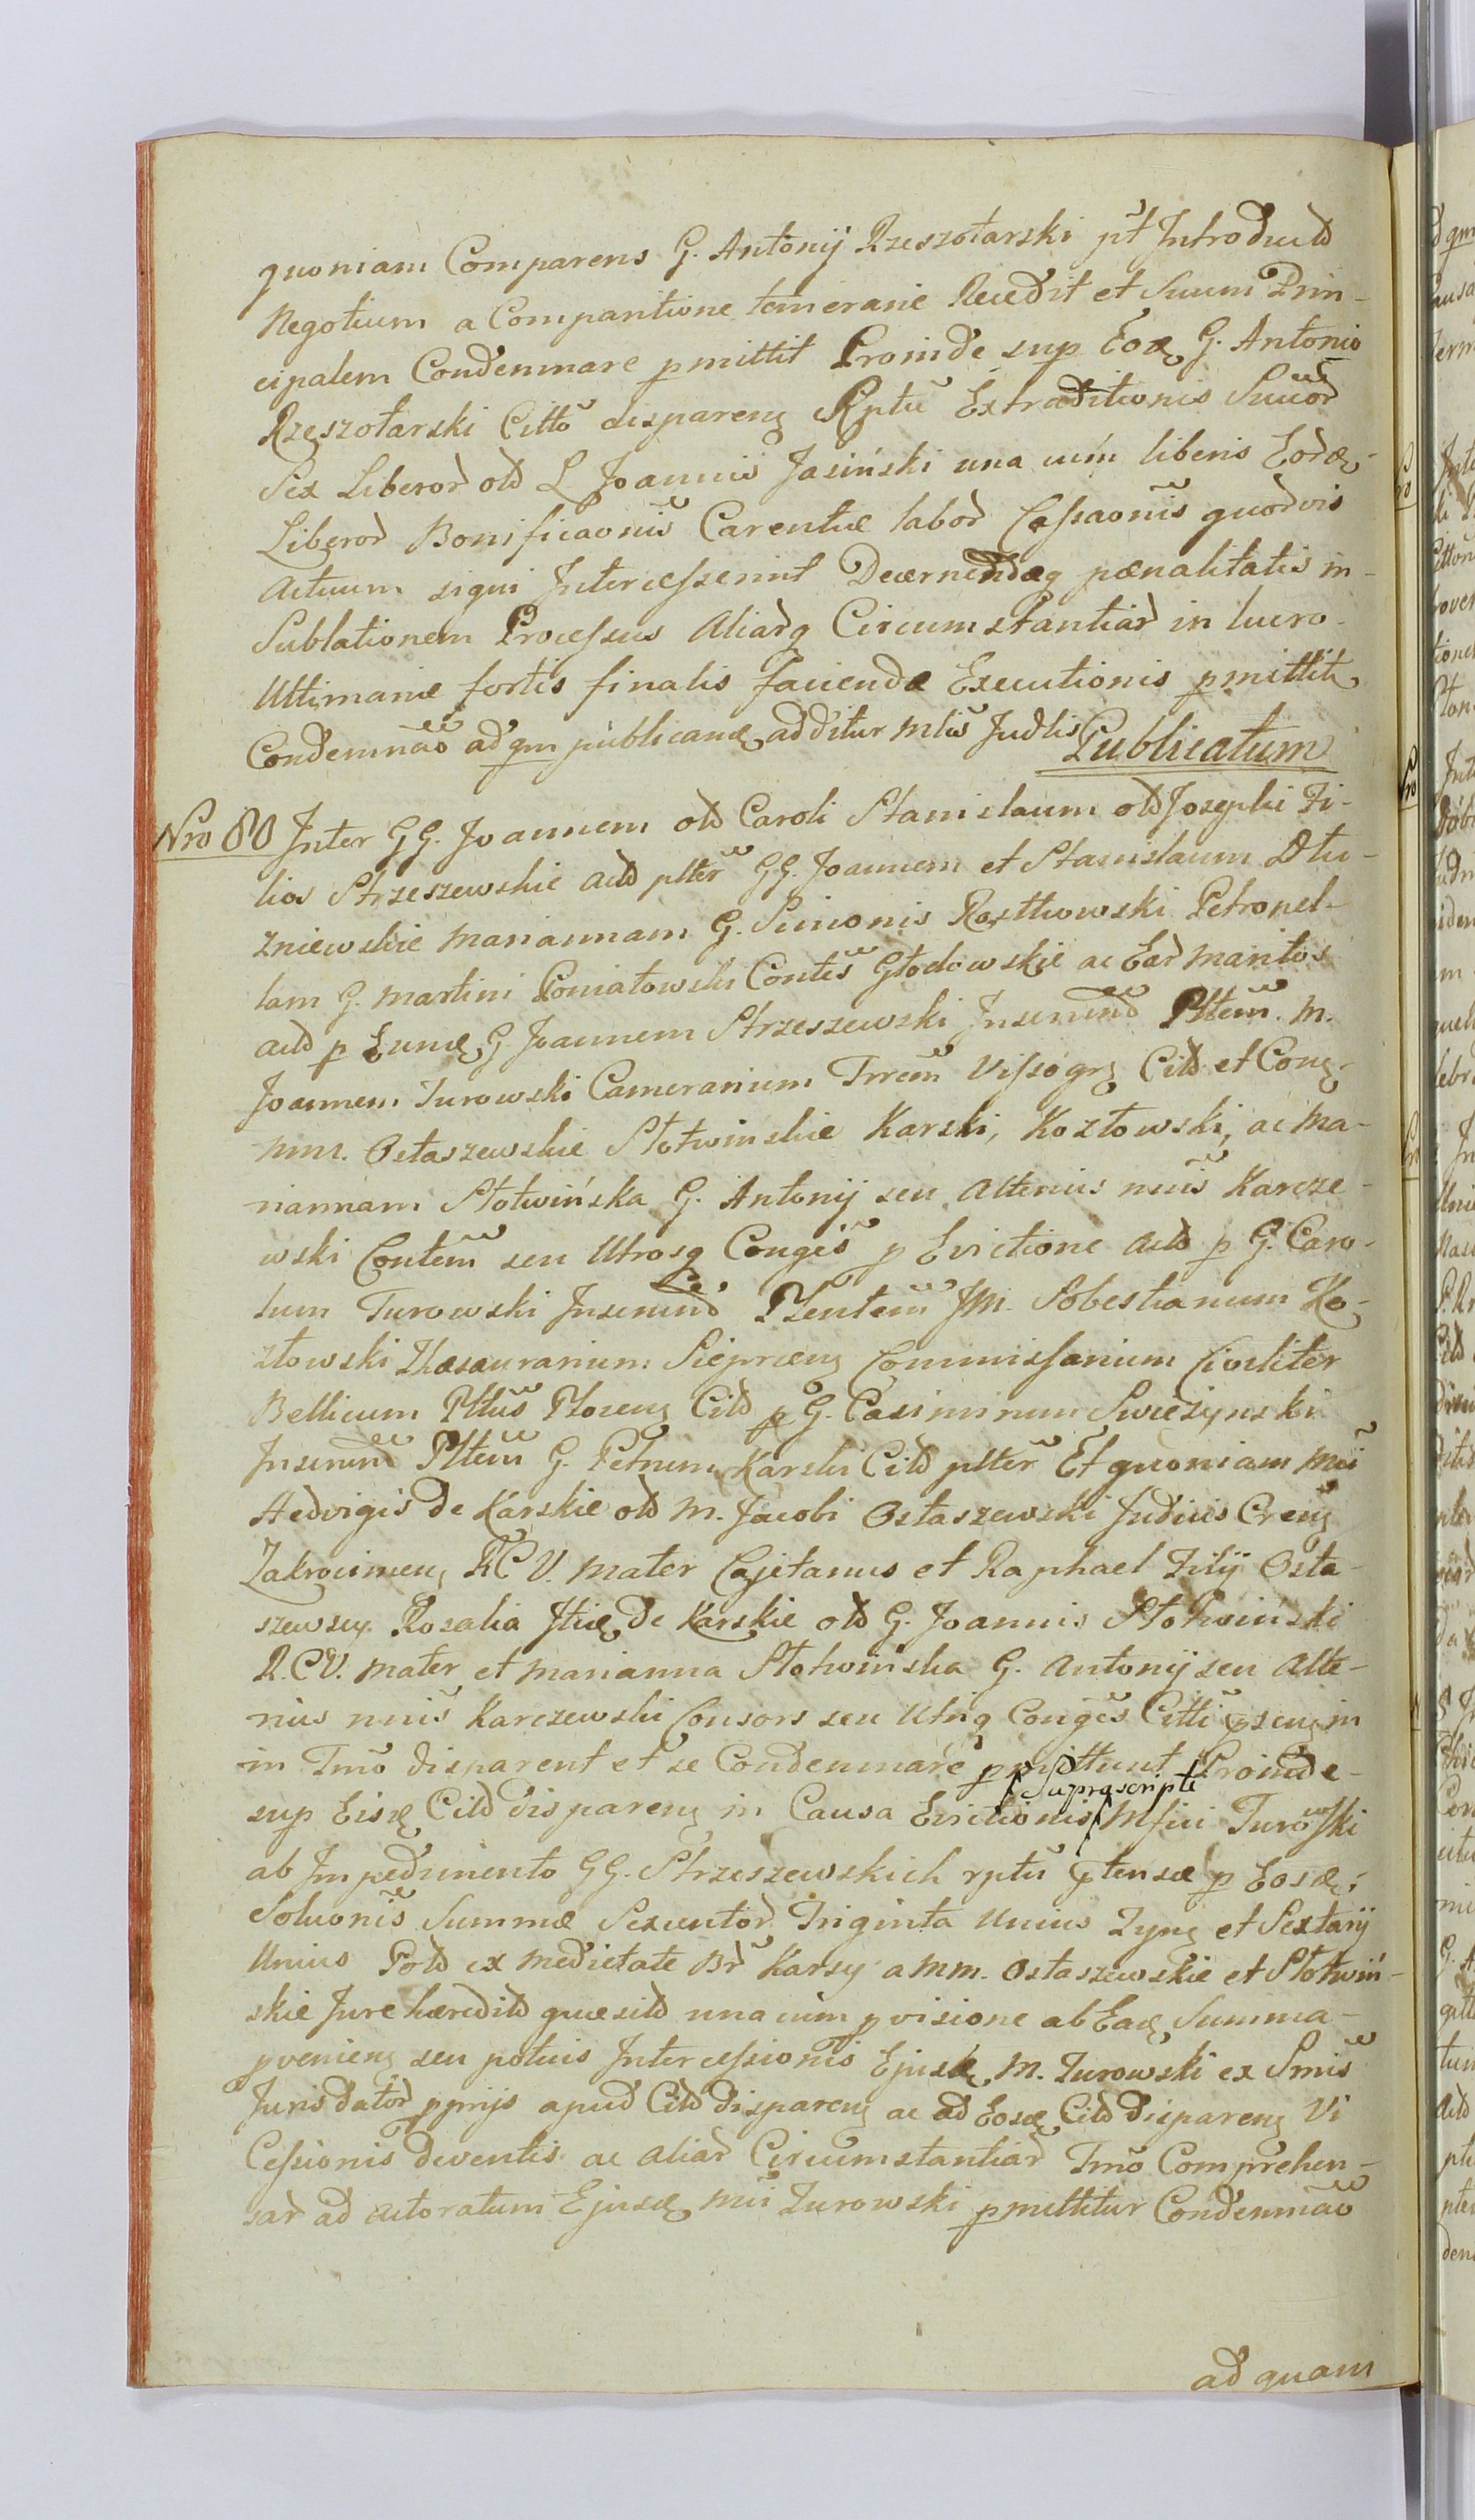 quoniam Comparens G. Antonij Rzeszotarski pt̃ Introductõ
Negotium a Comparitione temerarie Recedit et Suum Prin-
cipalem Condemnare pmittit Proinde sup Eoȩ G. Antonio
Rzeszotarski Citto disparenȩ Rptũ Extraditionis Suũor
Sex Liberor olõ L Joannis Jasiński una cum liberis Eordȩ
Liberor Bonificaonis Carentiæ labor Cassaonis quorvis
Actuum siqui Intercesserint Decernendæq pænalitatis in
Sublationem Processus Aliarq Circumstantiar in lucro
Ultimariæ fortis finalis faciendæ Executionis pmittit
Condemnaõ ad qm publicanȩ additur mlis Judlis Publicatum
Nro 80 Inter GG. Joannem olõ Caroli Stanislaum olõ Josephi Fi-
lios Strzeszewskie actõ plter GG. Joannem et Stanislaum Dłu-
zniewskie Mariannam G. Simonis Rostkowski Petronel-
lam G. Martini Poniatowski Contes Głodowskie ac Ear Maritos
actõ p Eunȩ G. Joannem Strzeszewski Inserend Pltem. M.
Joannem Turowski Camerarium Trrem Vissogrȩ Citõ et Conȩ
MM. Ostaszewskie Słotwinskie Karski, Kozłowski, ac Ma-
riannam Słotwińska G. Antonij seu Alterius nnis Karcze-
wski Contem seu Utrosq Conges p Evictione actõ p G. Caro-
lum Turowski Inserend Plentem JM. Sobestianum Ko-
złowski Thesaurarium Sieprcenȩ Commissarium Civiliter
Bellicum Pltus Plocenȩ Citõ p G. Casimirum Swiezynski
Inserend Pltem G. Petrum Karski Citõ plter Et quoniam Mci
Hedvigis de Karskie olõ M. Jacobi Ostaszewski Judicis Crenȩ
Zakrocimenȩ RC V. Mater Cajetanus et Raphael Filij Osta-
szewscy Rosalia Itiȩ de Karskie olõ G. Joannis Słotwiński
R.C.V. Mater et Marianna Słotwińska G. Antonij seu Alte-
rius nnis Karczewski Consors seu Utriq Conges Citti psenȩ in
in Tmo disparent et se Condemnare pmittunt Proinde
sup Eisȩ Citõ disparenȩ in Causa Evictionis Suprascripti Mfici Turowski
ab Impedimento GG. Strzeszewskich rptu ptensæ p Eosȩ
Soluonis Summæ Sexcentor Triginta Unius Tynȩ et Sextarij
Unius Polõ ex medietate Br Karsy a MM. Ostaszewskie et Słotwiń-
skie Jure hæreditõ quæsitõ una cum pvisione ab Eaȩ Summa
pvenienȩ seu potius Intercessionis Ejusȩ M. Turowski ex Smis
Jurisdator pprijs apud Citõ disparenȩ ac ad Eosȩ Citõ disparenȩ Vi
Cessionis deventis ac aliar Circumstantiar Tmo Comprehen-
sar ad actoratum Ejusȩ Mci Turowski pmittitur Condemnaõ
ad quam